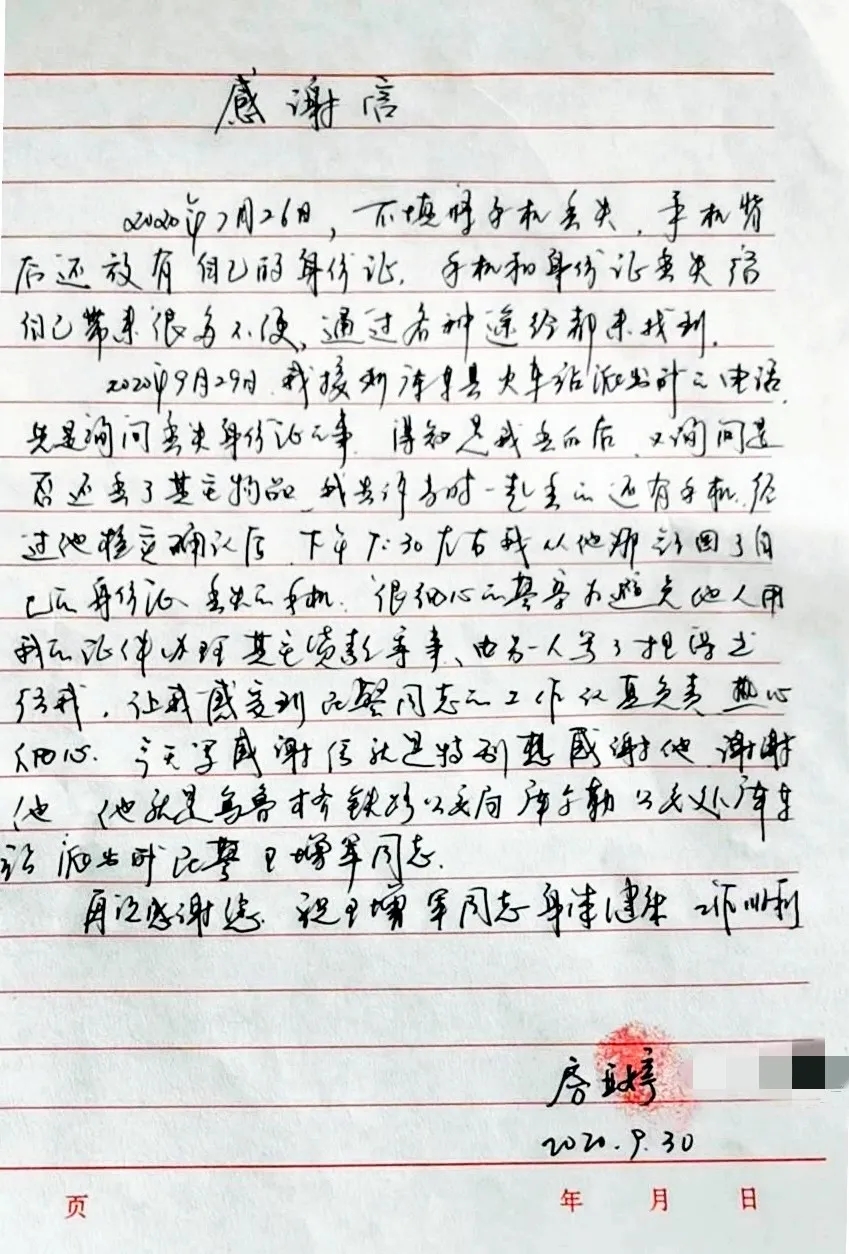 感谢信
2020年7月26日,不慎将手机丢失,手机背
后还放有自己的身份证.手机和身份证丢失给
自己带来很多不便,通过各种途径都未找到.
2020年9月29日,我接到库车县火车站派出所的电话,
先是询问丢失身份证的事,得知是我丢的后,又询问是
否还丢了其它物品,我告诉当时一起丢的还有手机,经
过他核实确认后,下午7:30左右我从他那领回了自
己的身份证、丢失的手机.很细心的警官为避免他人用
我的证件办理其它贷款等事,由另一人写了担保书
给我,让我感受到民警同志的工作认真负责,热心
细心.今天写感谢信就是特别想感谢他,谢谢
他,他就是乌鲁木齐铁路公安局库尔勒公安处库车
站派出所民警王增军同志.
再次感谢您,祝王增军同志身体健康 工作顺利
婷
2020.9.30
页 年 月 日